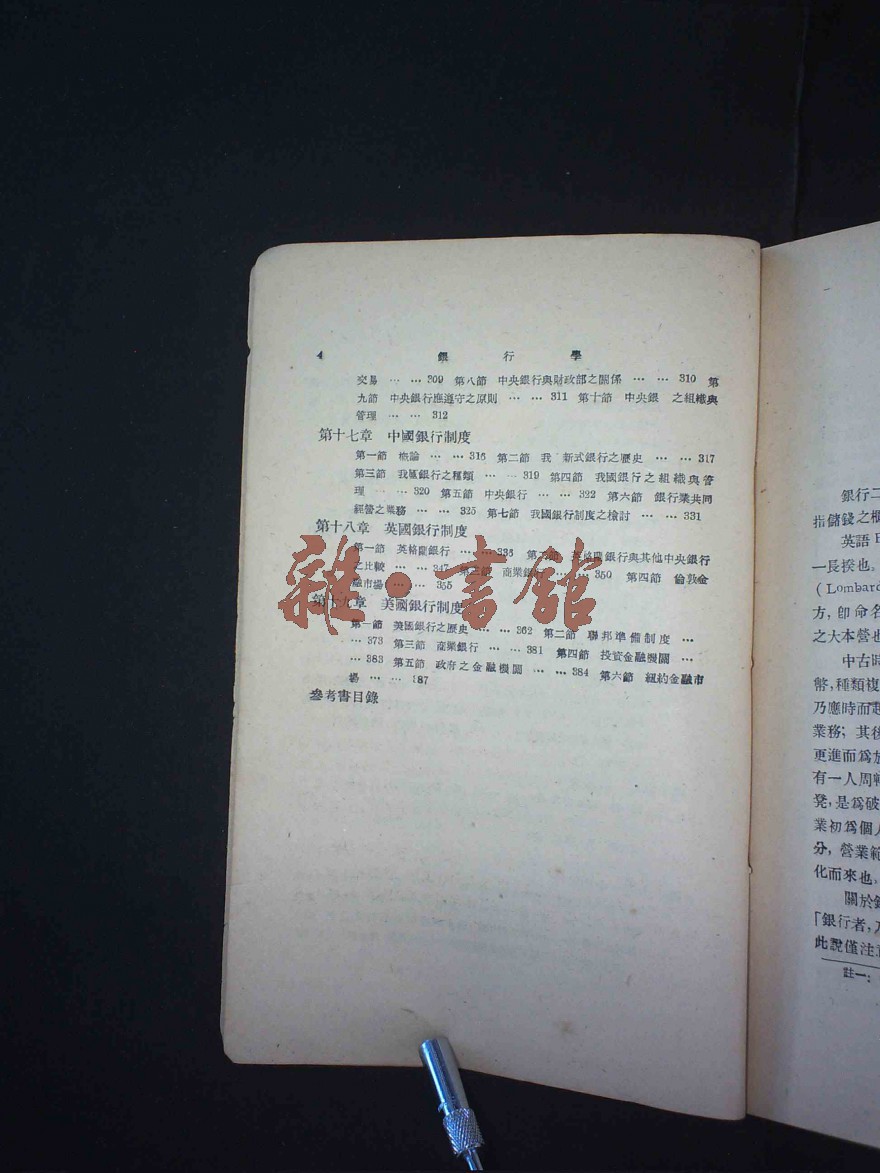 4 銀行學
交易 … … 309 第八節 中央銀行與財政部之關係 … … 310 第
九節 中央銀行應遵守之原則 … … 311 第十節 中央銀 之組織與
管理 … … 312
第十七章 中國銀行制度
第一節 概論 … … 316 第二節 我 新式銀行之歷史 … … 317
第三節 我國銀行之種類 … … 319 第四節 我國銀行之組織與管
理 … … 320 第五節 中央銀行 … … 322 第六節 銀行業共同
經營之業務 … … 325 第七節 我國銀行制度之檢討 … … 331
第十八章 英國銀行制度
第一節 英格蘭銀行 … … 336 第二節 英格蘭銀行與其他中央銀行
之比較 … … 347 第三節 商業銀行 … … 350 第四節 倫敦金
融市場 … … 355
第十九章 美國銀行制度
第一節 美國銀行之歷史 … … 362 第二節 聯邦準備制度 …
… 373 第三節 商業銀行 … … 381 第四節 投資金融機關 …
… 383 第五節 政府之金融機關 … … 384 第六節 紐約金融市
場 … … 387
參考書目錄
雜·書館
銀行二
指儲錢之櫃
英語 B
一長揆也。
(Lombard
方,卽命名
之大本營也
中古時
幣,種類複
乃應時而起
業務; 其後
更進而爲放
有一人周轉
凳,是爲破
業初爲個人
分,營業範
化而來也。
關於銀
「銀行者,
此說僅注
註一: